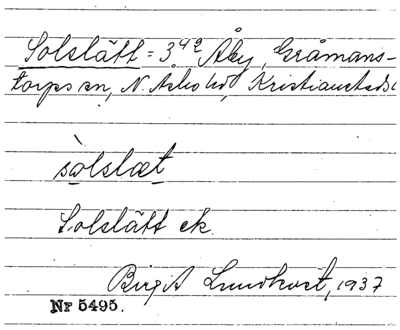 Solslätt = 3⁴² Åby, Gråmans-
torps sn, N. Åsbo hd, Kristianstads
sòlslæt
Solslätt ek.
Birgit Lundkvist, 1937
Nr 5495.